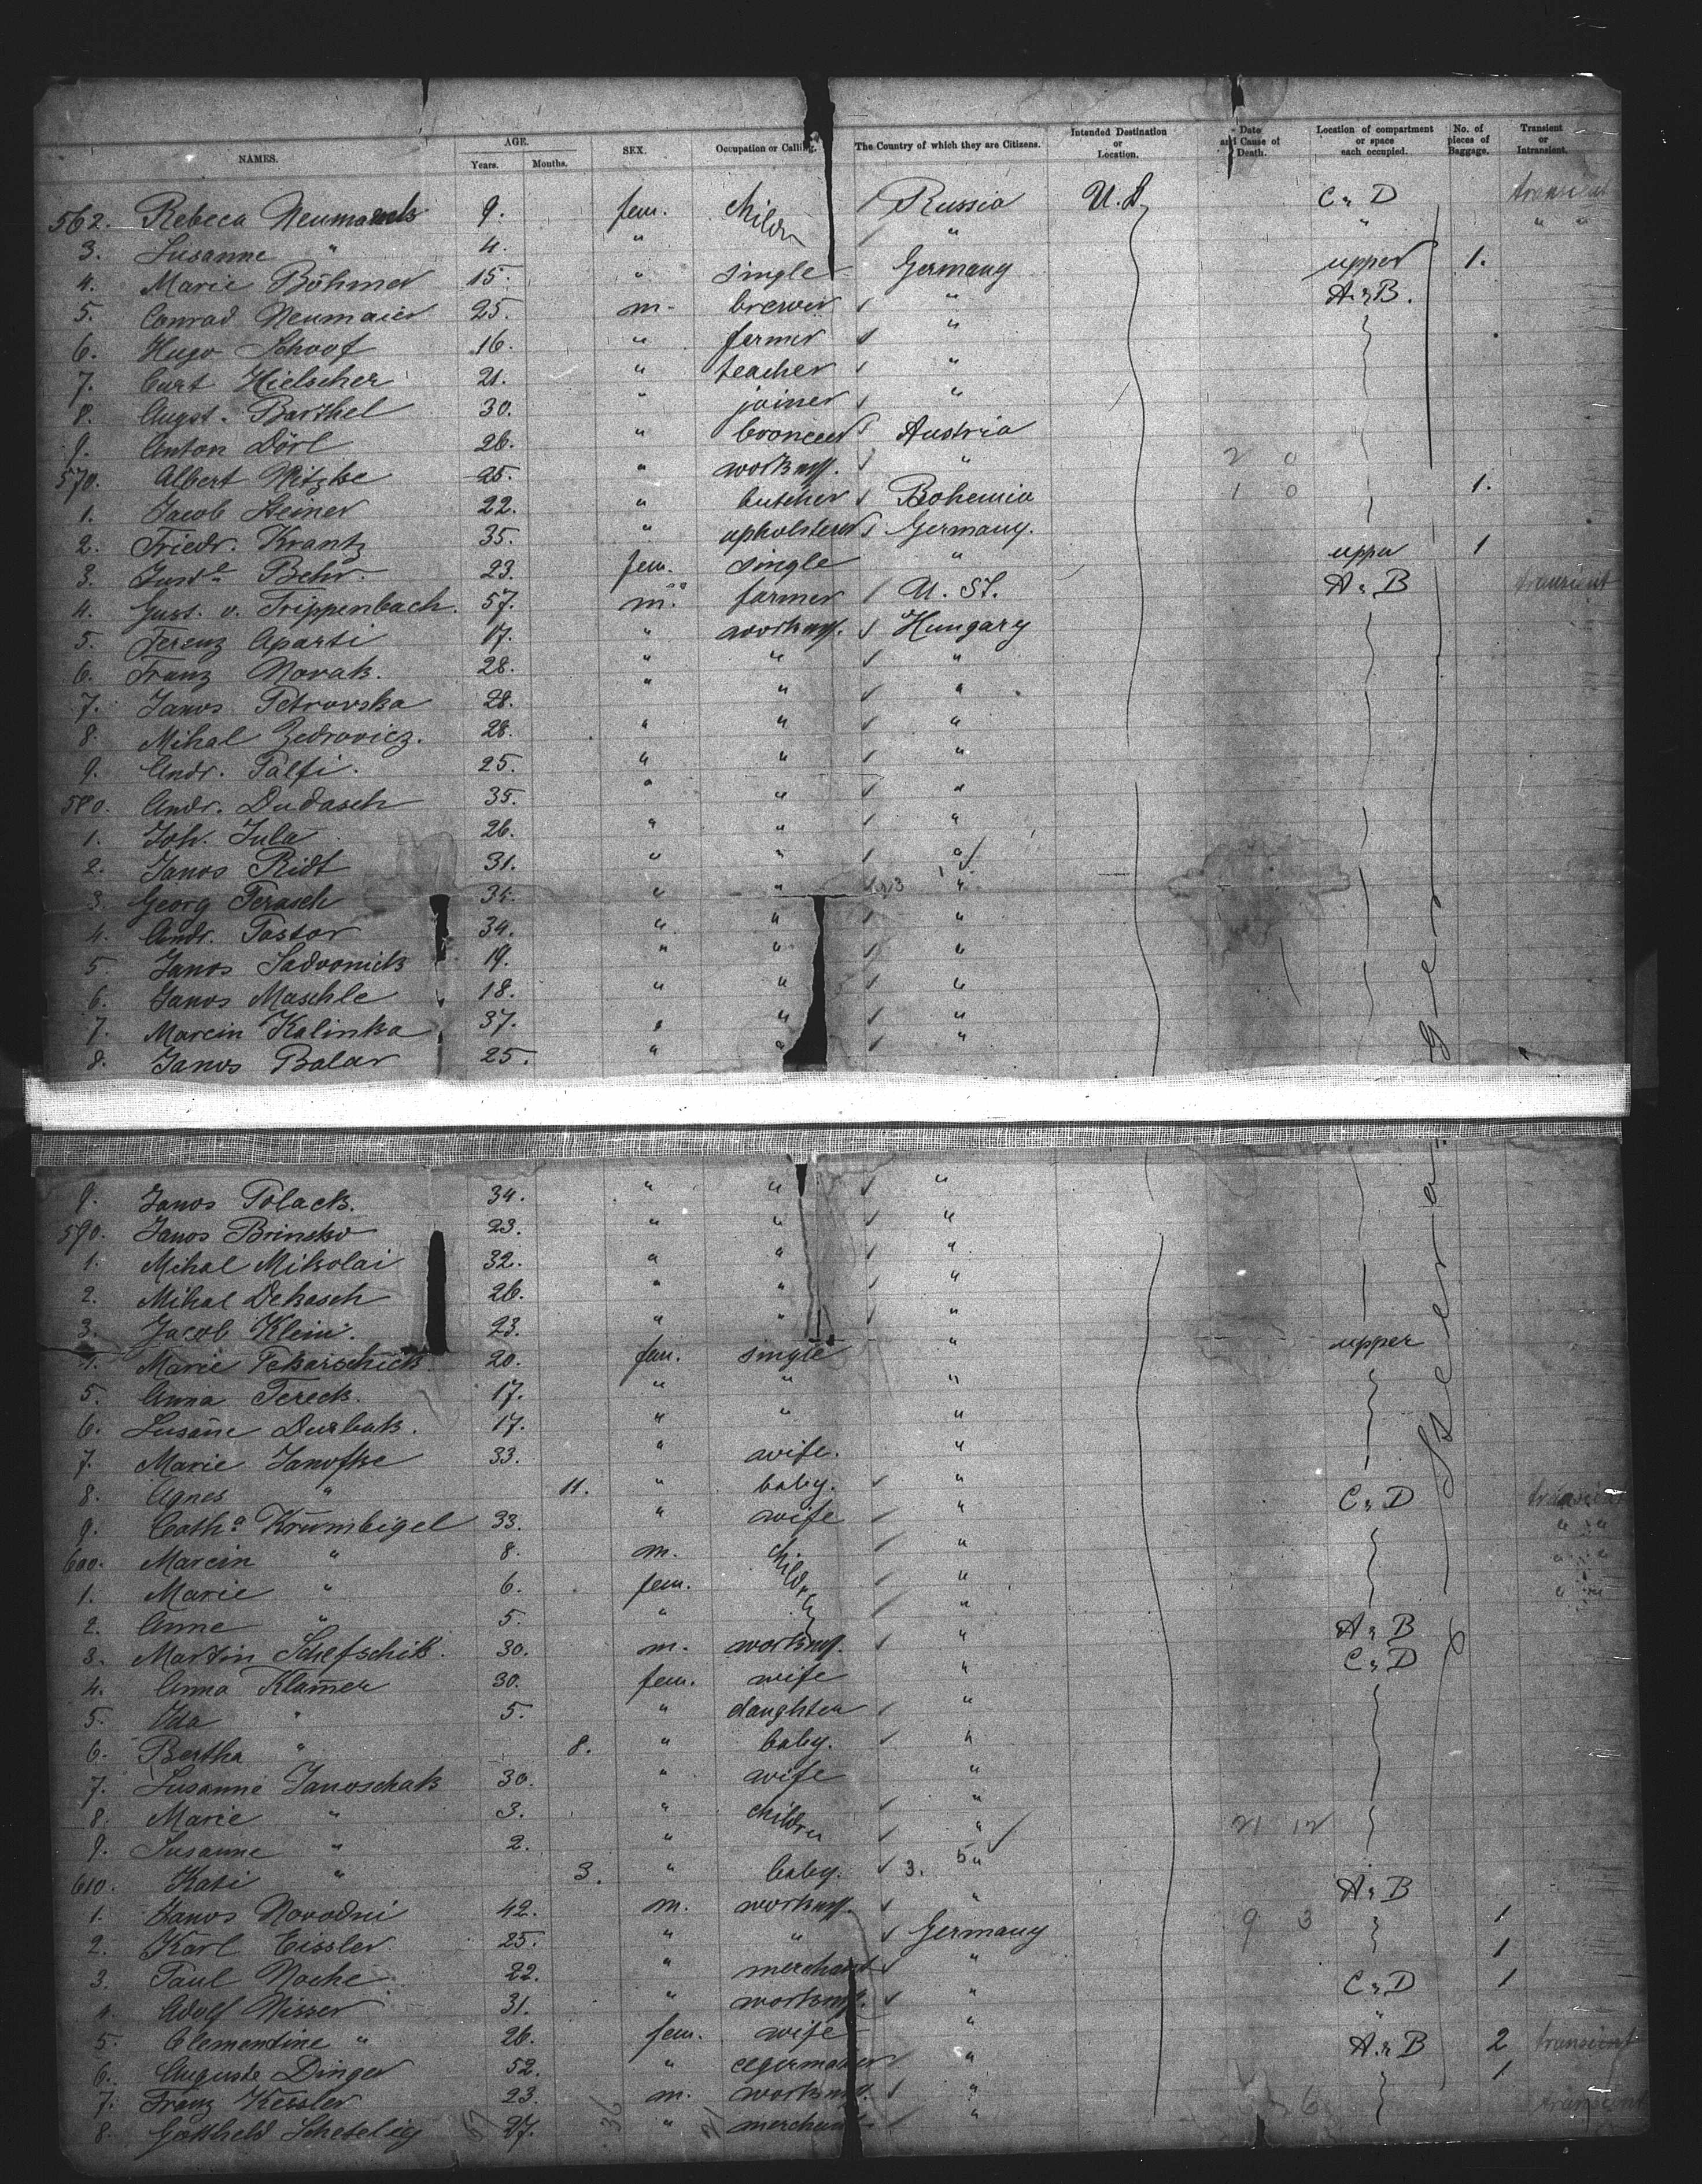 NAMES. AGE. Years. Months. SEX. Occupation or Calling. The Country of which they are Citizens. Intended Destination or Location. Date and Cause of Death. Location of compartment or space each occupied. No. of pieces of Baggage. Transient or Intransient.
562. Rebeca Neumark 9. fem. childr Russia U.S. C & D transient
3. Susanne " 4. " " " " "
4. Marie Böhmer 15. " single Germany upper 1.
5. Conrad Neumaier 25. m. brewer " A & B.
6. Hugo Schoof 16. " farmer "
7. Curt Hielscher 21. " teacher "
8. Augst. Barthel 30. " joiner "
9. Anton Dörl 26. " Austria
570. Albert Nitzke 25. " workmn. " 2 0
1. Jacob Steiner 22. " butcher Bohemia 1 0 1.
2. Friedr. Krantz 35. " upholsterer Germany.
3. Behr. 23. fem. single " upper 1
4. Gust. v. Trippenbach. 57. m. farmer U. St. A & B transient
5. Ferenz Aparti 17. " workmn. Hungary
6. Franz Novak. 28. " " "
7. Janos Petrovska 28. " " "
8. Mihal Zedrovicz. 28. " " "
9. Andr. Palfi. 25. " " "
580. Andr. Dudasch 35. " " "
1. Joh. Jula 26. " " "
2. Janos Ridt 31. " " "
3. Georg Ferasch 35. " " "
4. Andr. Pastor 34. " " "
5. Janos Sadvonick 19. " " "
6. Janos Maschle 18. " " "
7. Marcin Kalinka 37. " " "
8. Janos Balar 25. " " "
9. Janos Polack. 34. " " "
590. Janos Brinsko 23. " " "
1. Mihal Mikolai 32. " " "
2. Mihal Dekasch 26. " " "
3. Jacob Klein. 23. " " "
4. Marie Tekarschick. 20. fem. single " upper
5. Anna Tereck. 17. " " "
6. Susane Durbak. 17. " " "
7. Marie Janofke 33. " wife. "
8. Agnes " 11. " baby. " C & D transient
9. Catha Krumbigel 33. " wife " " "
600. Marcin " 8. m. children " " "
1. Marie " 6. fem. " " "
2. Anne " 5. " " A & B
3. Martin Schefschik. 30. m. workmn. " C & D
4. Anna Klamer 30. fem. wife "
5. Ida " 5. " daughter "
6. Bertha " 8. " baby. "
7. Susanne Janoschak 30. " wife "
8. Marie " 3. " children " 21 12
9. Susanne " 2. " "
610. Kati " 3. " baby. 3. " A & B
1. Janos Novodni 42. m. workmn. " 9 3 1
2. Karl Eissler 25. " " Germany 1
3. Paul Noche 22. " merchant " C & D 1
4. Adolf Nisser 31. " workmn. " "
5. Clementine " 26. fem. wife " A & B 2 transient
6. Auguste Dinger 52. " " 1
7. Franz Kessler 23. m. workmn. " 6 transient
8. Gotthold Schetelig 27. " merchant "
Steerage